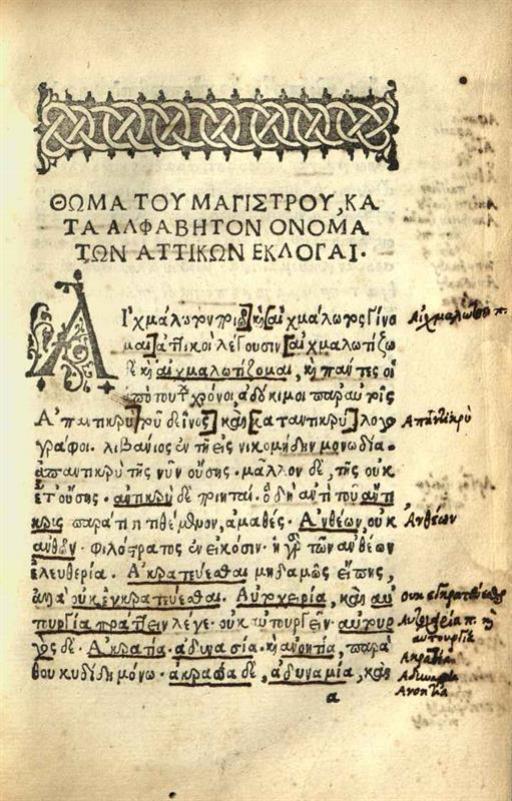 ΘΩΜΑ ΤΟΥ ΜΑΓΙΣΤΡΟΥ, ΚΑ
ΤΑ ΑΛΦΑΒΗΤΟΝ ΟΝΟΜΑ
ΤΩΝ ΑΤΤΙΚΩΝ ΕΚΛΟΓΑΙ.
Αἰχμάλωτον ποιῶ] κỳ [αἰχμάλωτος γίνο
μαι] ἀττικοὶ λέγουσιν [αἰχμαλωτίζω
δὲ κỳ αἰχμαλωτίζομαι, κỳ πάντες οἱ
ἀπὸ τούτου χρόνοι, ἀδόκιμοι παρὰ τοῖς
Ἀπαντικρὺ] τοῦ δεῖνος] καὶ [καταντικρὺ] λογο
γράφοι. λιβάνιος ἐν τῇ εἰς νικομήδην μονωδία.
ἀπαντικρὺ τῆς νῦν οὔσης. μᾶλλον δὲ, τῆς οὐκ
ἔτ' οὔσης. ἀντικρὺ δὲ ποιηταί. ὁ δὴ ἀντὶ τοῦ ἄντι
κρυς παρά τι τιθέμενον, ἀμαθές. Ἀνθέων, οὐκ
ἀνθῶν. φιλόστρατος ἐν εἰκόσιν. ἡ γὰρ τῶν ἀνθέων
ἐλευθερία. Ἀκρατεύεσθαι μηδαμῶς εἴπῃς,
ἀλλ' οὐκ ἐγκρατεύεσθαι. Αὐτοχειρία, καὶ αὐ
τουργία πράττειν λέγε. οὐκ αὐτουργεῖν. αὐτουρ
γὸς δὲ. Ἀκρατία. ἀδυνασία. κỳ ἀνοητία, παρὰ
θουκυδίδῃ μόνω. ἀκράτεια δὲ, ἀδυναμία, καὶ
a
Ἀπαντικρὺ
Ἀνθέων
οὐκ ἐγκρατεύεσθαι
Ἀκρατία
Ἀνοητία